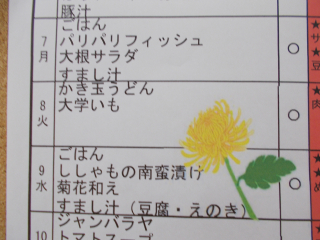 豚汁
7
月
ごはん
パリパリフィッシュ
大根サラダ
すまし汁
○
8
火
かき玉うどん
大学いも
○
9
水
ごはん
ししゃもの南蛮漬け
菊花和え
すまし汁（豆腐・えのき）
○
10
ジャンバラヤ
トマトスープ